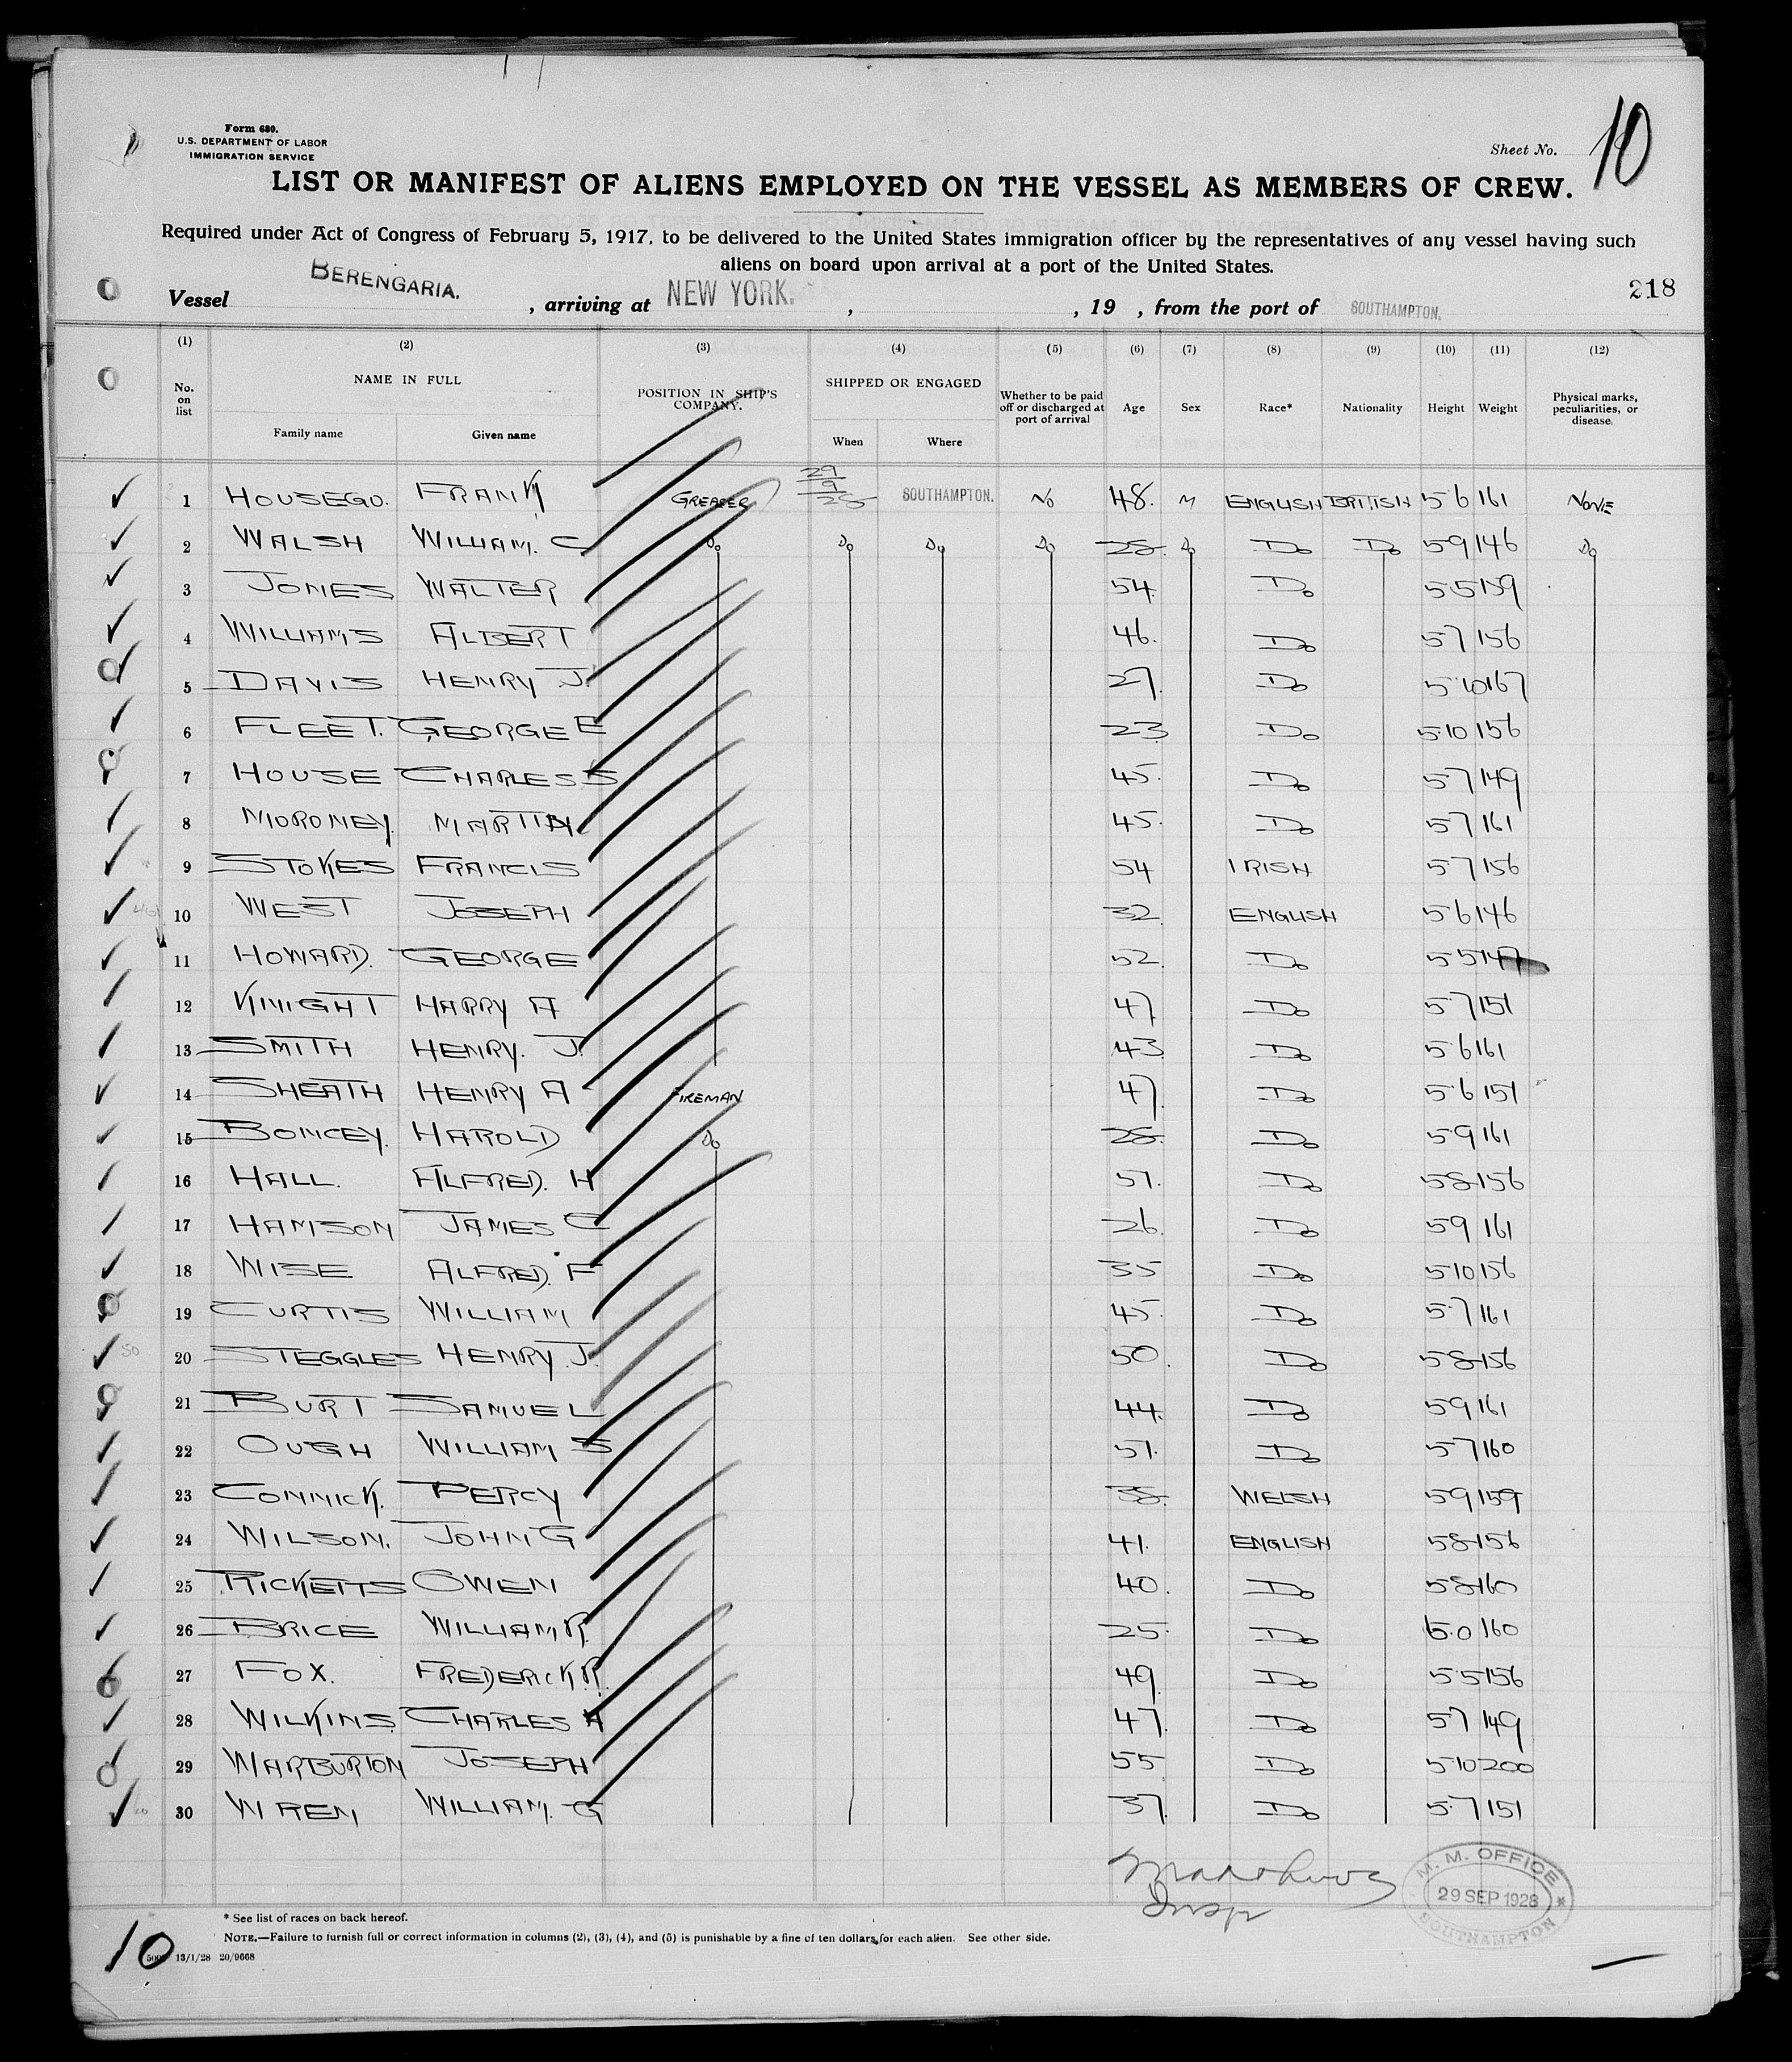 Form 680.
U.S. DEPARTMENT OF LABOR
IMMIGRATION SERVICE
Sheet No. 10
LIST OR MANIFEST OF ALIENS EMPLOYED ON THE VESSEL AS MEMBERS OF CREW.
Required under Act of Congress of February 5, 1917, to be delivered to the United States immigration officer by the representatives of any vessel having such
aliens on board upon arrival at a port of the United States.
218
Vessel BERENGARIA. , arriving at NEW YORK. , , 19 , from the port of SOUTHAMPTON.
(1) (2) (3) (4) (5) (6) (7) (8) (9) (10) (11) (12)
No. on list NAME IN FULL POSITION IN SHIP'S COMPANY. SHIPPED OR ENGAGED Whether to be paid off or discharged at port of arrival Age Sex Race* Nationality Height Weight Physical marks, peculiarities, or disease
Family name Given name When Where
1 HOUSEGO. FRANK GREASER 29/9/28 SOUTHAMPTON. No 48. M ENGLISH BRITISH 5 6 161 NONE
2 WALSH WILLIAM. C Do Do Do Do 28. Do Do Do 5 9 146 Do
3 JONES WALTER 54. Do 5 5 159
4 WILLIAMS ALBERT 46. Do 5 7 156
5 DAVIS HENRY J. 27. Do 5 10 167
6 FLEET. GEORGE E 23 Do 5 10 156
7 HOUSE CHARLES S 45. Do 5 7 149
8 MORONEY. MARTIN 45. Do 5 7 161
9 STOKES FRANCIS 54 IRISH 5 7 156
10 WEST JOSEPH 32 ENGLISH 5 6 146
11 HOWARD. GEORGE 52. Do 5 5
12 KNIGHT HARRY A 47 Do 5 7 151
13 SMITH HENRY. J. 43 Do 5 6 161
14 SHEATH HENRY A FIREMAN 47. Do 5 6 151
15 BONCEY. HAROLD Do 28. Do 5 9 161
16 HALL. ALFRED. H 51. Do 5 8 156
17 HAMSON JAMES C 26. Do 5 9 161
18 WISE ALFRED. F 35 Do 5 10 156
19 CURTIS WILLIAM 45. Do 5 7 161
20 STEGGLES HENRY. J. 50. Do 5 8 156
21 BURT SAMUEL 44. Do 5 9 161
22 OUGH WILLIAM S 51. Do 5 7 160
23 CONNICK. PERCY 38. WELSH 5 9 159
24 WILSON. JOHN G 41. ENGLISH 5 8 156
25 RICKETTS OWEN 40. Do 5 8 160
26 BRICE WILLIAM R. 25. Do 6.0 160
27 FOX. FREDERICK R. 49. Do 5 5 156
28 WILKINS. CHARLES A 47. Do 5 7 149
29 WARBURTON JOSEPH 55 Do 5 10 200
30 WREN WILLIAM. G 37. Do 5 7 151
M. M. OFFICE
29 SEP 1928
SOUTHAMPTON
* See list of races on back hereof.
NOTE.—Failure to furnish full or correct information in columns (2), (3), (4), and (5) is punishable by a fine of ten dollars for each alien. See other side.
10 13/1/28 20/9668